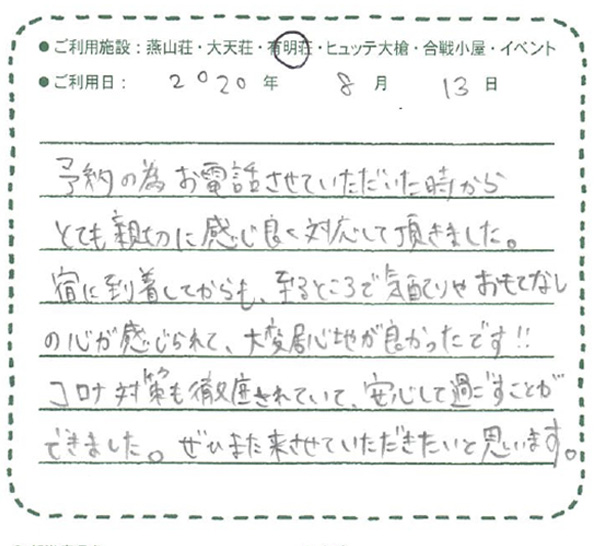 ●ご利用施設：燕山荘・大天荘・有明荘・ヒュッテ大槍・合戦小屋・イベント
●ご利用日： 2020 年 8 月 13 日
予約の為お電話させていただいた時から
とても親切に感じ良く対応して頂きました。
宿に到着してからも、至るところで気配りやおもてなし
の心が感じられて、大変居心地が良かったです!!
コロナ対策も徹底されていて、安心して過ごすことが
できました。ぜひまた来させていただきたいと思います。